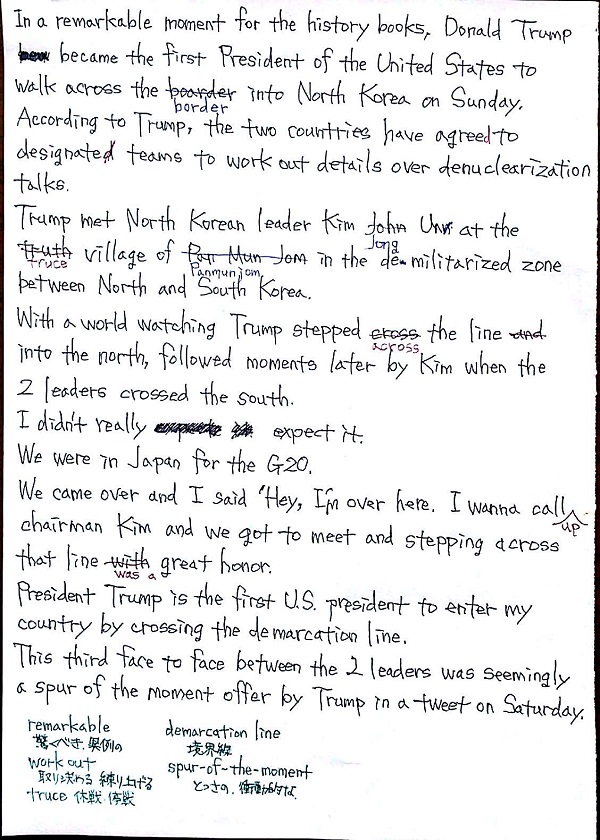 In a remarkable moment for the history books, Donald Trump
became the first President of the United States to
walk across the boarder into North Korea on Sunday.
border
According to Trump, the two countries have agreed to
designated teams to work out details over denuclearization
talks.
Trump met North Korean leader Kim John Un at the
Jong
truth village of Pan Mun Jom in the de-militarized zone
truce Panmunjom
between North and South Korea.
With a world watching Trump stepped cross the line and
across
into the north, followed moments later by Kim when the
2 leaders crossed the south.
I didn't really expect it.
We were in Japan for the G20.
We came over and I said "Hey, I'm over here. I wanna call
up
chairman Kim and we got to meet and stepping across
that line with great honor.
was a
President Trump is the first U.S. president to enter my
country by crossing the demarcation line.
This third face to face between the 2 leaders was seemingly
a spur of the moment offer by Trump in a tweet on Saturday.
remarkable demarcation line
驚くべき、異例の 境界線
work out spur-of-the-moment
取り決める 練り上げる とっさの、衝動的な
truce 休戦、停戦